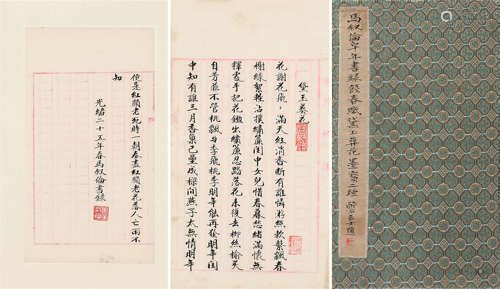 馬叙倫早年書錄餞春賦黛玉葬花墨
黛玉葬花
花謝花飛飛滿天紅消香斷有誰憐游絲軟繫飄春
榭絮輕沾撲繡簾閨中女兒惜春暮愁緒滿懷無
釋處手把花鋤出繡簾忍踏落花來復去柳絲榆莢
自芳菲不管桃飄與李飛桃李明年能再發明年閨
中知有誰三月香巢已壘成樑間燕子太無情明年
便是紅顏老死時一朝春盡紅顏老花落人亡兩不
知
光緒二十五年春馬叙倫書錄